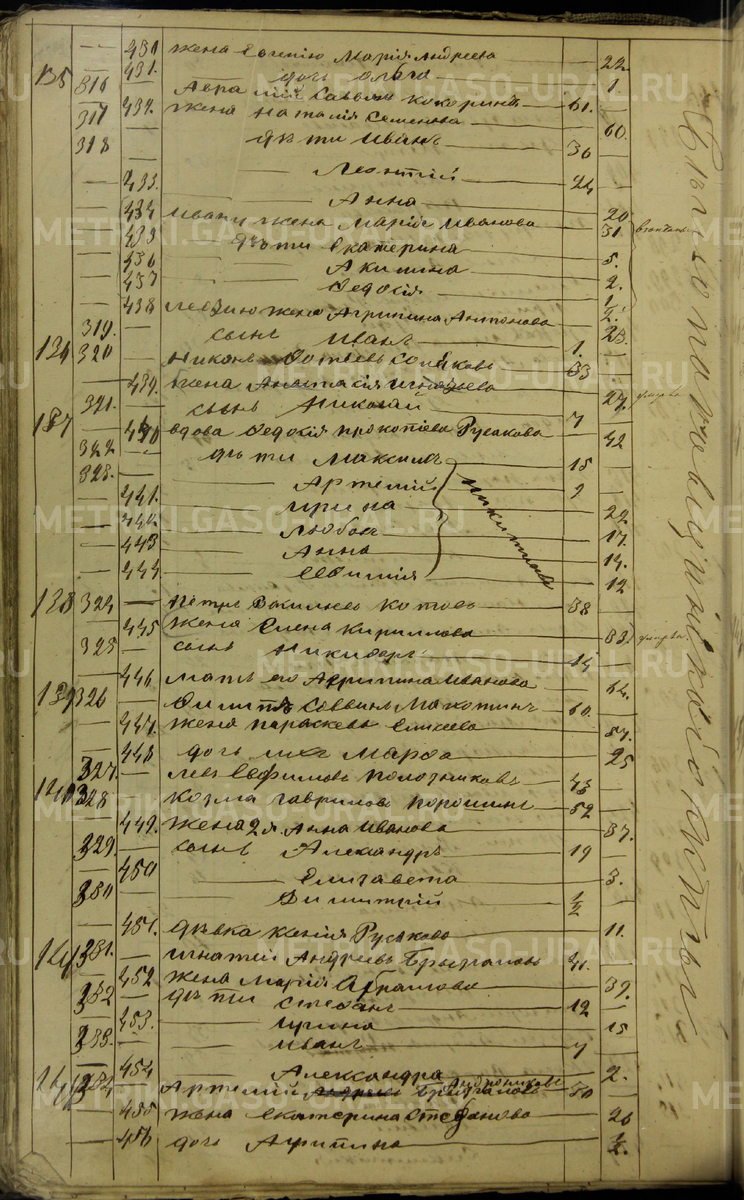 — 430 жена Евгенію Марія Андреева — 22.
— 431. — дочь Ольга — 1.
135 316 — Аврамій Саввинъ Кокоринъ — 61. —
— 432. жена Наталія Семенова — 60.
317 — дѣти Иванъ — 36 —
318 — Леонтій — 24 —
— 433. — Анна — 20
— 434 Ивану жена Марія Иванова — 31.
— 435 дѣти Екатерина — 5.
— 436 — Акилина — 2.
— 437 — Ѳедосія — 1/2.
— 438 Леонтію жена Агрипина Антонова — 23.
319. — сынъ Иванъ — 1. —
320 — Никонъ Фотіевъ — 33 —
— 439. жена Анастасія Игнатьева — 27.
321. — сынъ Николай — 7 —
137 — 440 вдова Ѳедосія Прокопіева Русакова — 42
322 — дѣти Максимъ — 15 —
323. — Артемій — 9 —
— 441. — Ирина — 22.
— 442 — Любовь — 17.
— 443 — Анна — 14.
— 444 — Евфимія — 12
Никитины
138 324 — Петръ Васильевъ Котовъ — 38 —
— 445 жена Елена Кириллова — 33.
325 — сынъ Никифоръ — 14 —
— 446 мать его Агрипина Иванова — 62.
139 326 — Филиппъ Саввинъ Махотинъ — 60. —
— 447. жена Параскева Елисеева — 57.
— 448 дочь ихъ Марѳа — 25
327. — Левъ Евфимовъ Полозниковъ — 43 —
140 328 — Козма Гавриловъ Порошинъ — 52 —
— 449. жена 2я. Анна Иванова — 37.
329. — сынъ Александръ — 19 —
— 450 — Елизавета — 3.
330 — Димитрій — 1/2 —
— 451. дѣвка Ксенія Русакова — 11.
141 331. — Игнатій Андреевъ — 41. —
— 452 жена Марія Абрамова — 39.
332 — дѣти Стефанъ — 12 —
— 453. — Ирина — 15
333. — Иванъ — 7 —
— 454 — Александра — 2.
334 — Артемій Андрониковъ — 30 —
— 455 жена Екатерина Стефанова — 26
— 456 дочь Агрипина — 1/2.
METRIKI.GASO-URAL.RU